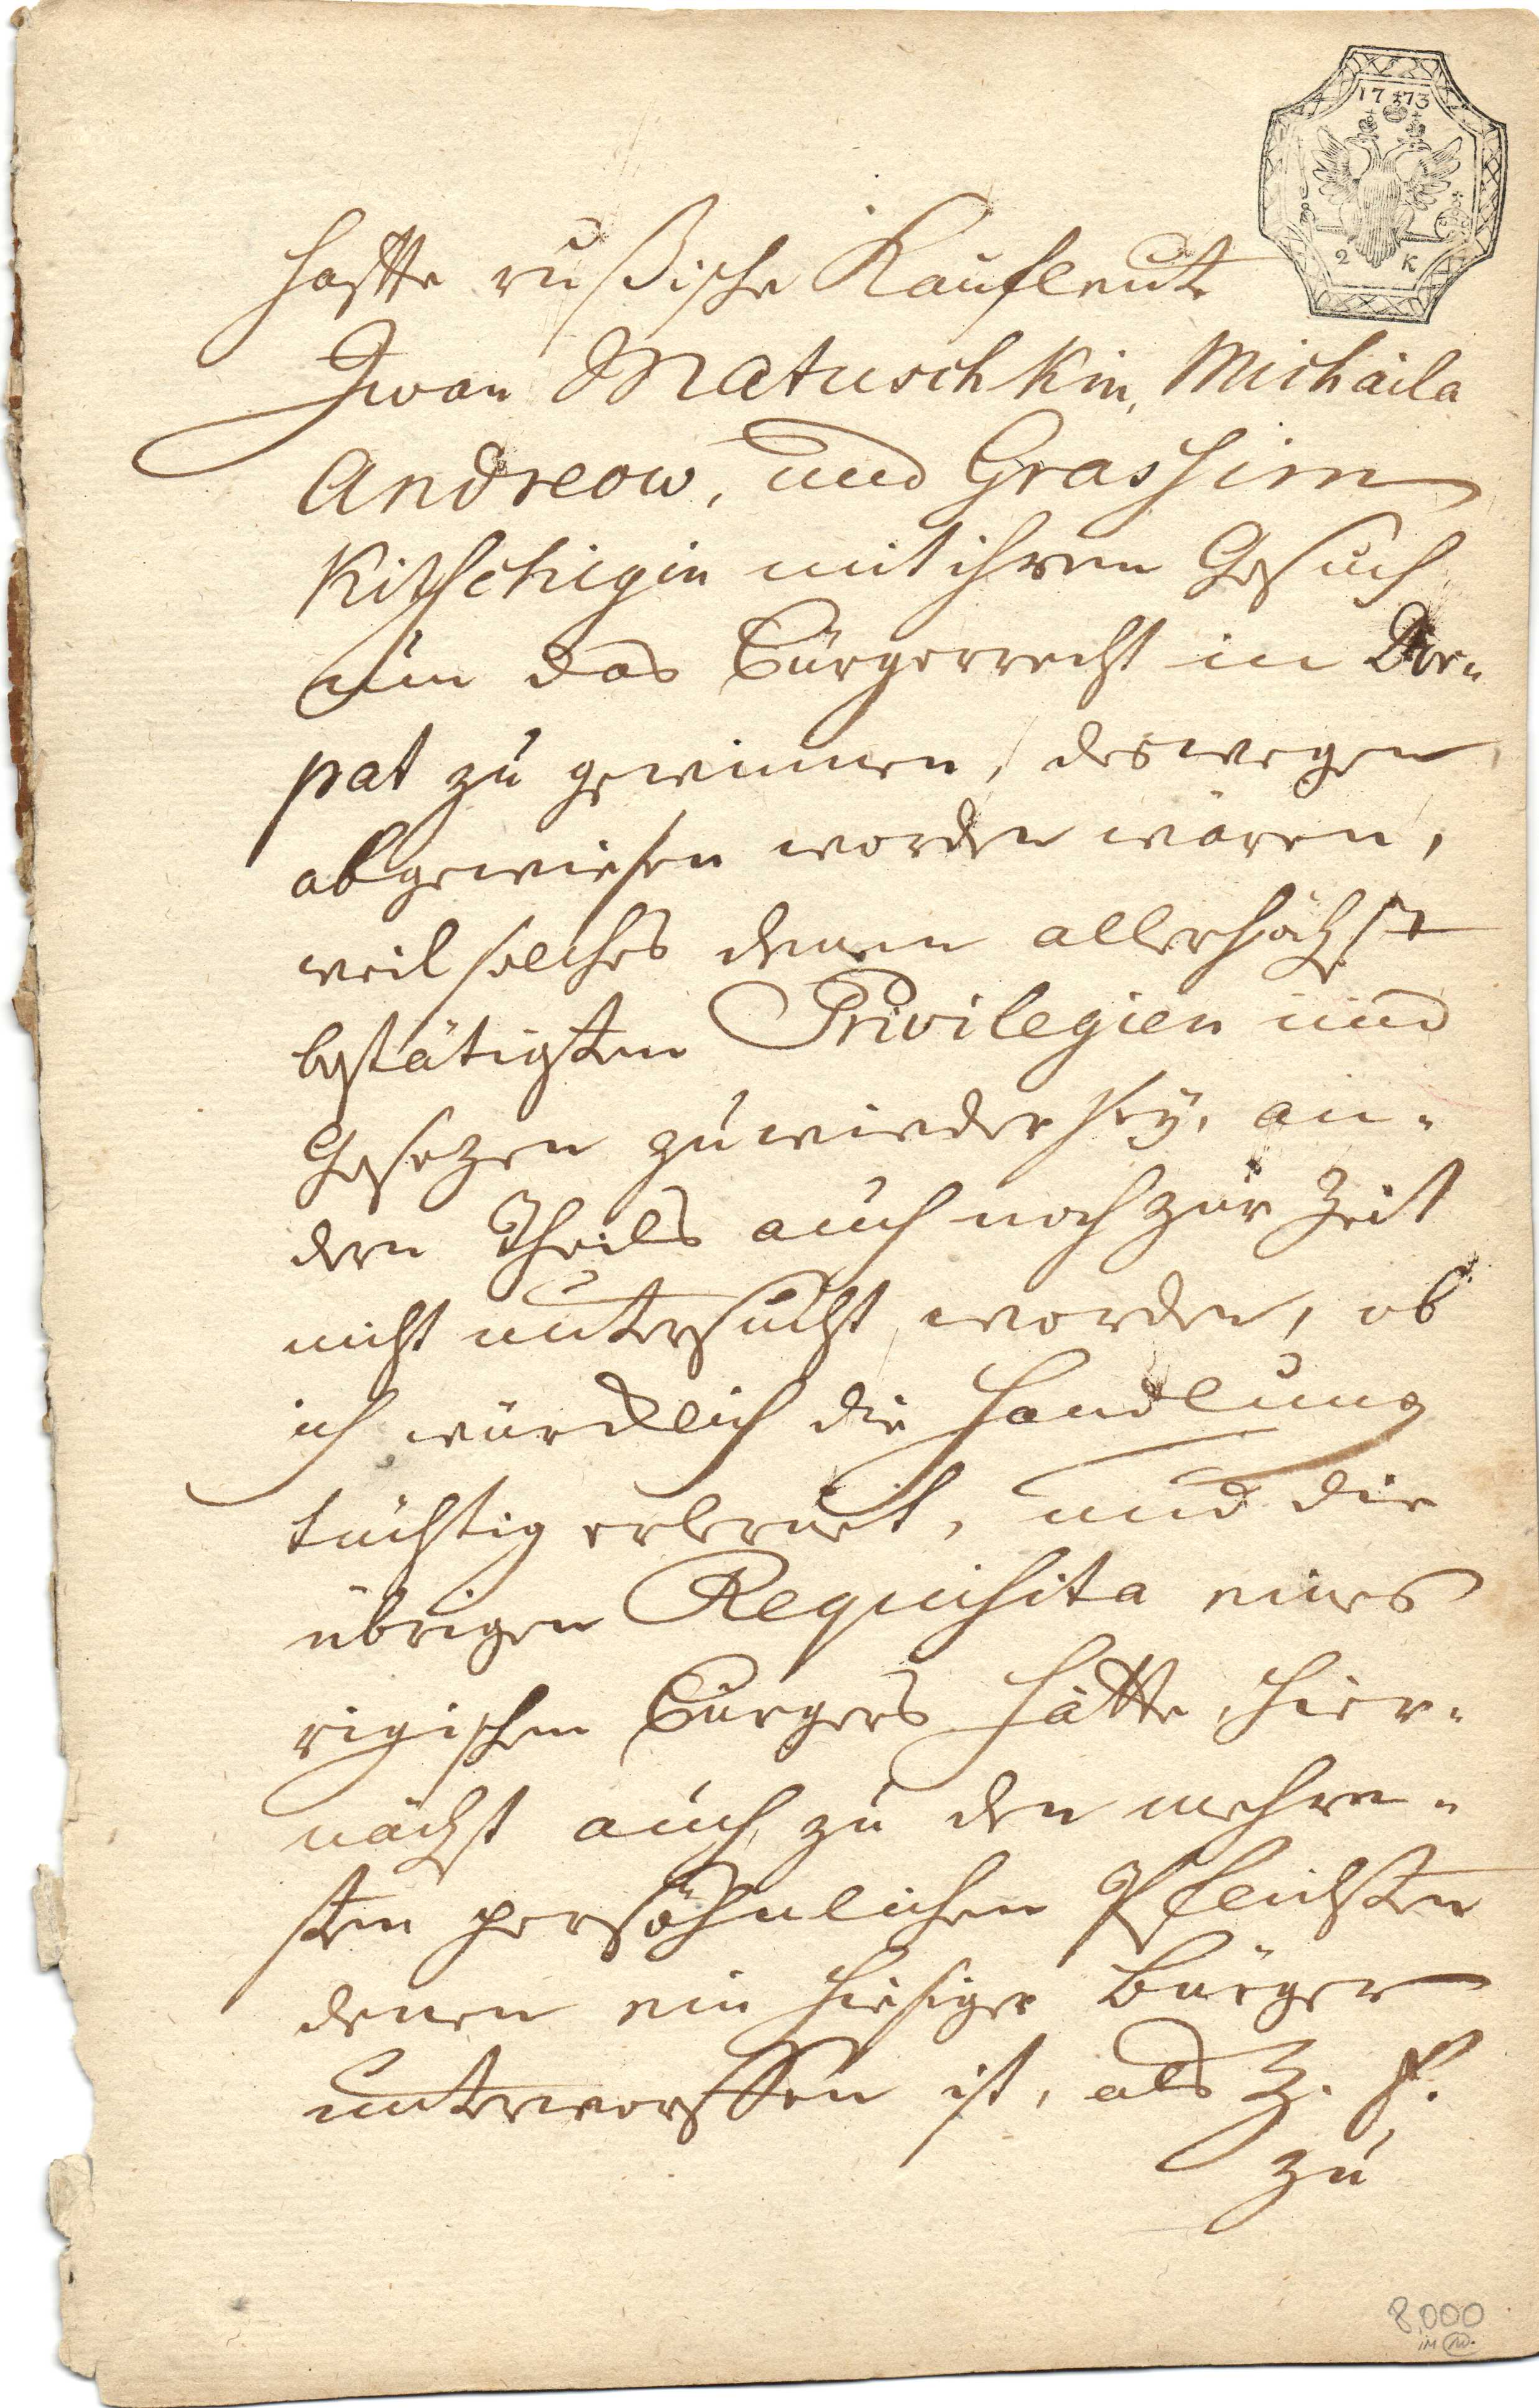 1773
2 K
hafte rußische Kaufleute
Iwan Matuschkin, Michaila
Andreow, und Grassim
Kitschigin mit ihrem Gesuch
um das Bürgerrecht in Dor-
pat zu gewinnen, deswegen
abgewiesen worden wären,
weil solches denen allerhöchst
bestätigten Privilegien und
Gesezen zuwieder sey, an-
dern Theils auch noch zur Zeit
nicht untersucht worden, ob
ich würcklich die Handlung
tüchtig erlernet, und die
übrigen Requisita eines
rigischen Bürgers hätte, hier-
nächst auch zu den mehre-
sten persöhnlichen Pflichten
denen ein hiesiger Bürger
unterworffen ist, als z. E.
zu
8,000